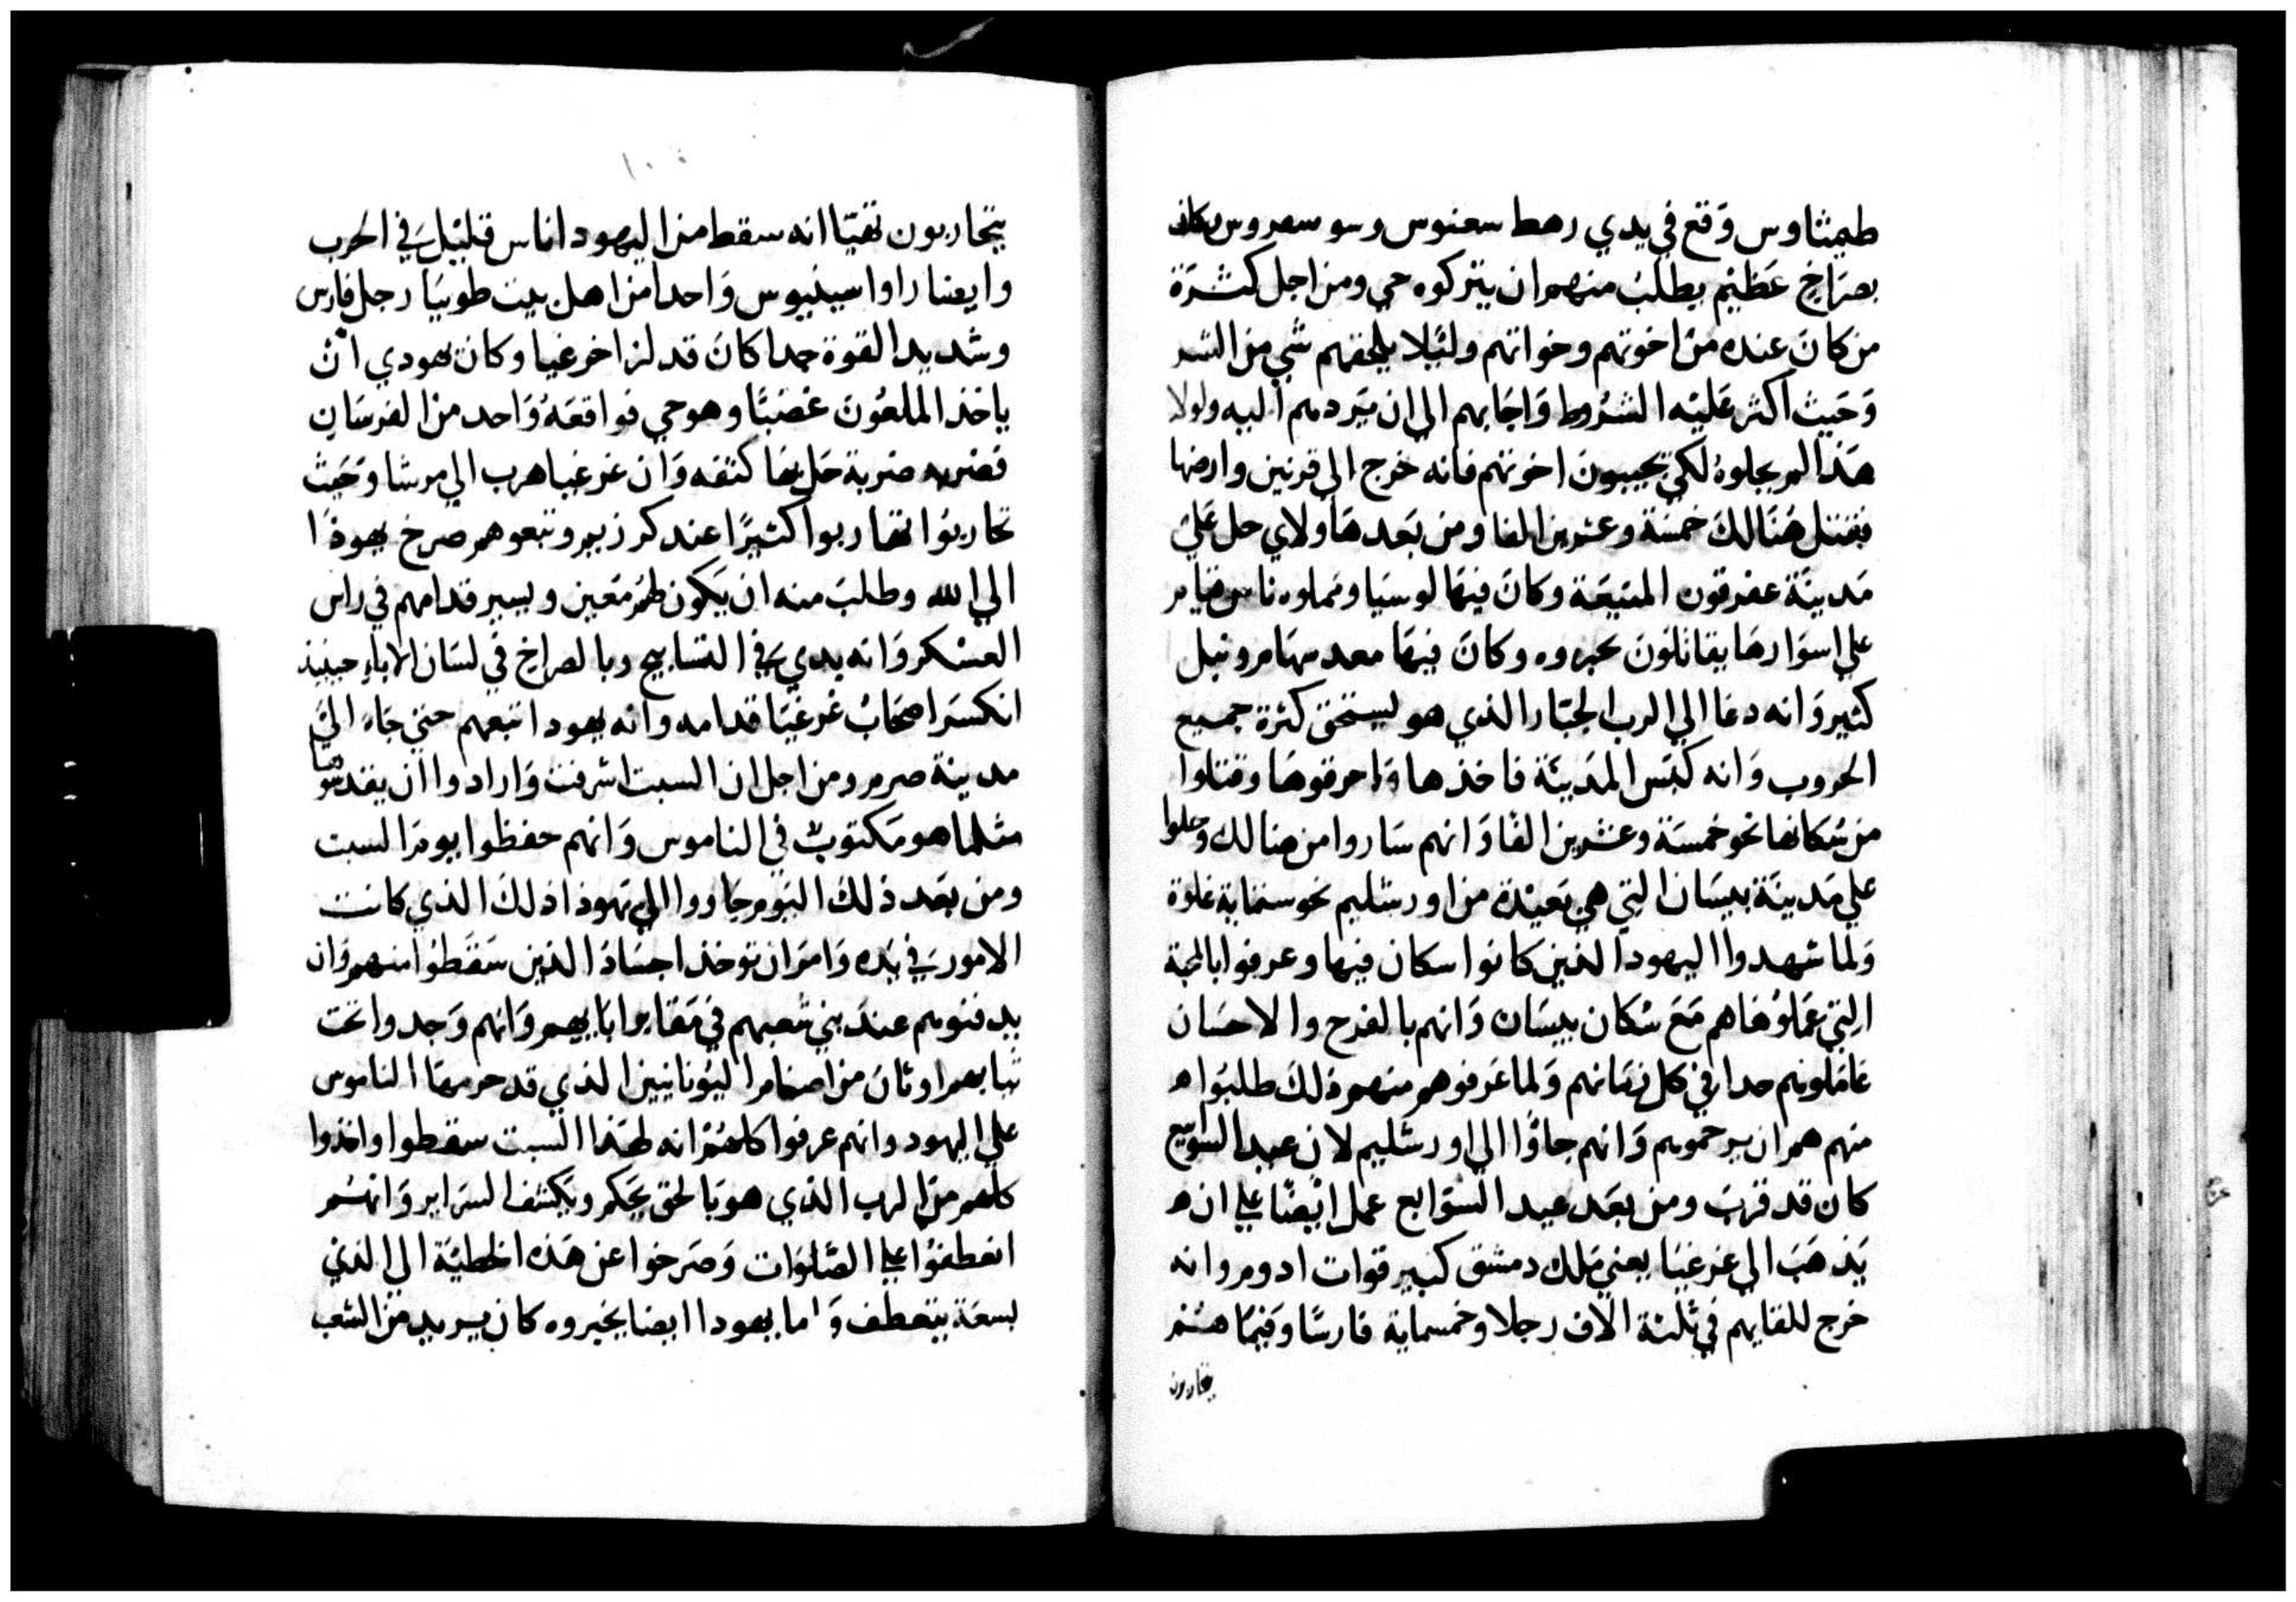 طيمثاوس وَقع في يدي رهط سعنوس وسو سعدوس وكان
بصرَاخ عَظيْم يطلبُ منهم ان يتركوه حي ومن اجل كثرَة
من كانَ عنده من اخوتهم وخواتهم ولئلا يلحقهم شي من الشر
وَحَيث اكثر عَليْه الشرُوط وَاجَابهم الي ان يَردهم اليه ولولا
هَذا لم يخلوهُ لكي تجيبون اخوتهم فانه خرج الي قرنين وارضها
فقتل هُنَالكَ خمسَة وعشرين الفا ومن بَعدهَا ولاي حل عَلي
مَدينَة عفرقون المنيعَة وكانَ فيهَا لوسيَا ومملوه ناس قيام
علي اسوَارهَا يقاتلونَ بحبروه وكانَ فيهَا معد سهَام ونبل
كثير وَانه دعَا الي الرب الجبَار الذي هو يستحق كثرة جميع
الحروب وَانه كبَس المدَينَة فاخذها وَاحرقوهَا وقتلوا
من سُكانها نحو خمسَة وعشرين الفًا وَانهم سَاروا من هنالك وحلوا
علي مَدينَة بيسَان التي هي بَعيْدة من اورشليم نحو ستماية غلوة
وَلما شهدوا اليهود الذين كانوا سكان فيها وعرفوا بالمحبة
التي عَملوُهَا هم مَعَ سُكان بيسَان وَانهم بالفرح والاحسَان
عَاملونهم جدا في كل زمَانهم وَلما عَرفوهم منهم ذلكَ طلبوُا ه
منهم هم ان يرحموهم وَانهم جاوُا الي اورشليم لان عيد السوابيع
كان قد قربَ ومن بعَد عيد السَوابع عمل ايْضًا علي ان ه
يَذهَبَ الي غرغيَا يعني مَلك دمشق كبير قوات ادوم وانه
خرج للقايهم في ثلثة الاف رجلا وخمسماية فارسًا وَفيمَا هُم
يتحاربون
يتحاربون تقيّا انه سقط من اليهود اناس قليْل في الحَرب
وايضا راوا سيبيوس وَاحدا من اهل بيت طوبيَا رجل فارس
وشديد القوة جدا كانَ قد لز اخر غيا وكان يهودي ان
ياخذ الملعُون غضبًا وهو حي فواقعَهُ وَاحد من الفرسَان
فضربه ضربة حَل بهَا كتفه وَان غرغيا هرب الي مرشا وَحَيث
تحاربوُا تحاربوا كثيرًا عند كرزيم وتبعوهم صرخ يهوذا
الي الله وطلبَ منه ان يَكون لهُم مَعين ويسير قدامهم في راس
العسْكر وَانه بدي في التسَابيح وبالصراخ في لسَان الاباءِ حينيذ
انكسَر اصحَابُ غرغيَا قدامه وانه يهودا تبَعهم حتي جَاءَ الي
مدينة صرم ومن اجل ان السبت اشرفت وَارادوا ان يقدسوها
مثلما هو مَكتوبٌ في الناموس وَانهم حفظوا يومَ السبت
ومن بعَد ذلكَ اليَوم جَاووا الي يَهوذا ذلكَ الذي كانت
الامور في يَده وَامَر ان توخذ اجسَادَ الذين سَقطوُا منهم وَان
يدفنوهم عندَ بني شعبهم في مَقابر ابَايهم وَانهم وَجدوا تحَت
ثيابهم اوثانَ من اصنام اليُونانيين الذي قد حرمهَا الناموس
علي اليهود وانهم عرفوا كلهُم انه لهَذا السبت سقطوا وانخذوا
كلهم من الرب الذي هو بَالحق يحَكم ويَكشف السرَاير وَانهُم
انعطفوُا علي الصَّلوَات وَصَرخوا عن هَذه الخطيْة الي الذي
بسعَة يتعطف وَاما يهودا ايضا بخيروه كان يسريد من الشعب